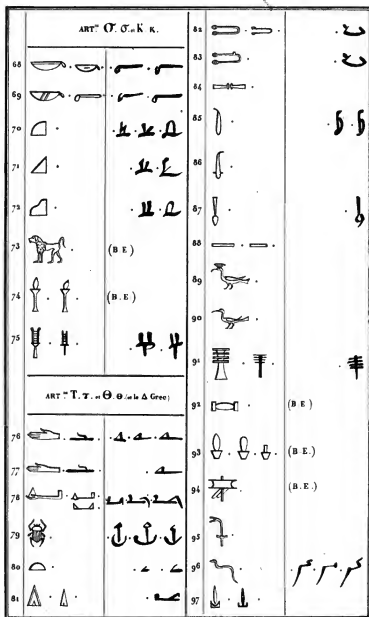 ART.^ES Ϭ. ϭ. et K K.
68
69
70
71
72
73 (B.E)
74 (B.E.)
75
ART.^ES T. T. et Θ. Θ. (et le Δ Grec)
76
77
78
79
80
81
82
83
84
85
86
87
88
89
90
91
92 (B E)
93 (B.E.)
94 (B.E.)
95
96
97